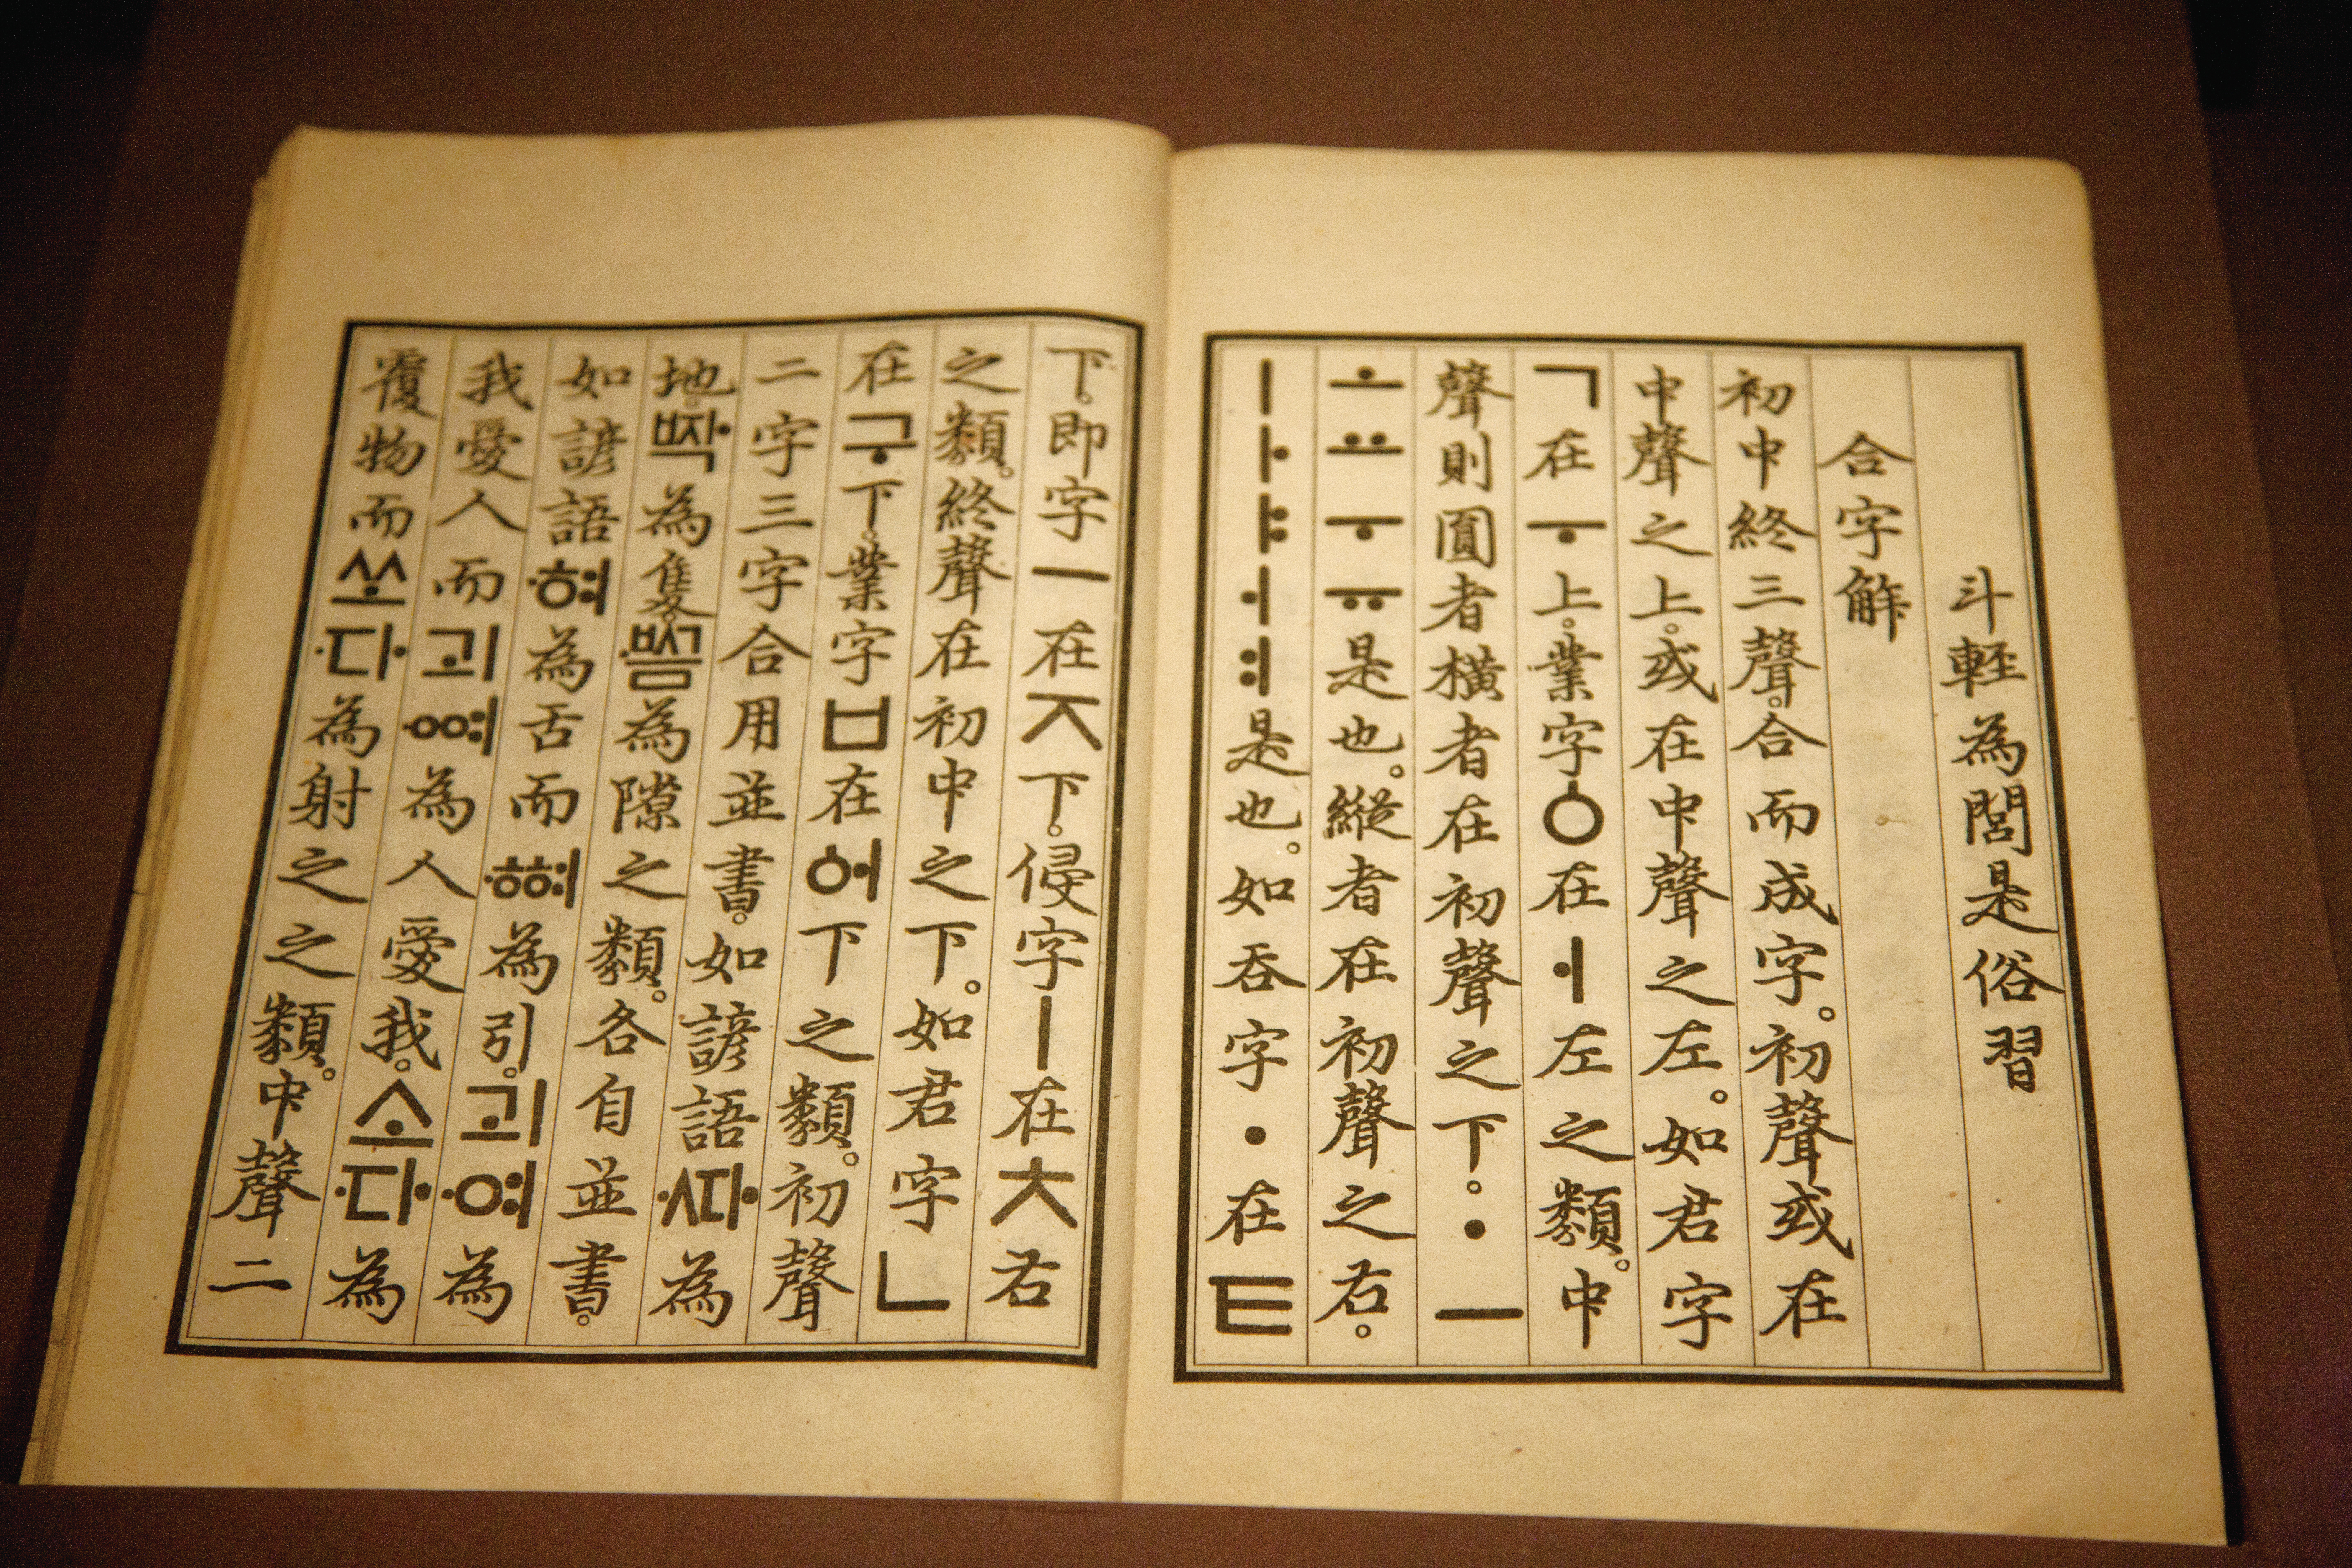 斗輕為閭是俗習
合字解
初中終三聲。合而成字。初聲或在
中聲之上。或在中聲之左。如君字
ㄱ在ㅜ上。業字ㆁ在ㅓ左之類。中
聲則圓者橫者在初聲之下。ㆍㅡ
ㅗㅛㅜㅠ是也。縱者在初聲之右。
ㅣㅏㅑㅓㅕ是也。如呑字ㆍ在ㅌ
下。即字ㅡ在ㅈ下。侵字ㅣ在ㅊ右
之類。終聲在初中之下。如君字ㄴ
在구下。業字ㅂ在ᅌᅥ下之類。初聲
二字三字合用並書。如諺語〮ᄯᅡ〮為
地。ᄧᅡᆨ〮為隻。〮ᄢᅳᆷ為隙之類。各自並書。
如諺語〮혀為舌而〮ᅘᅧ為引。괴〮여為
我愛人而괴〮ᅇᅧ為人愛我。소〮다〮為
覆物而쏘〮다〮為射之之類。中聲二